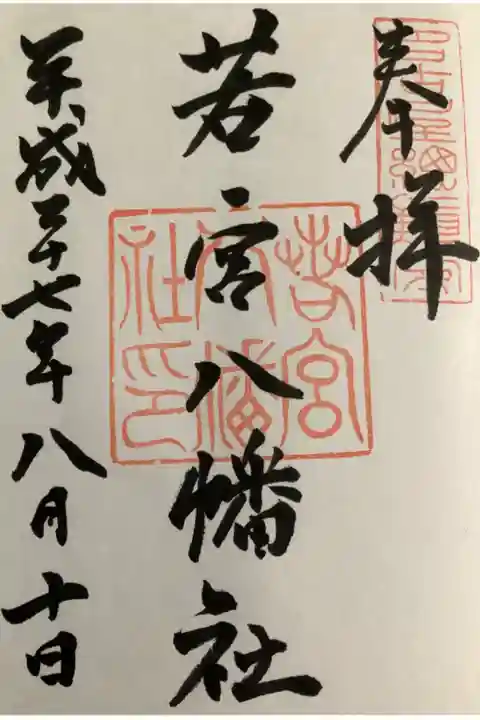 奉拝
若宮八幡社
平成二十七年八月十日
若宮
八幡
社印